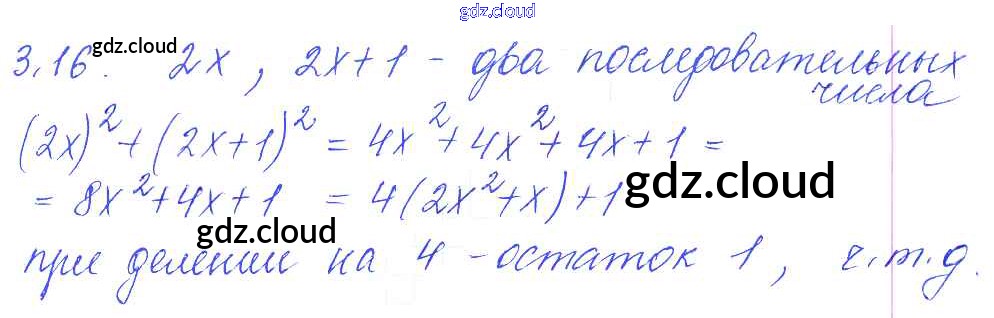 gdz.cloud
gdz.cloud
3.16. 2x, 2x+1 - два последовательных
числа
(2x)² + (2x+1)² = 4x² + 4x² + 4x + 1 =
= 8x² + 4x + 1 = 4(2x² + x) + 1
gdz.cloud
gdz.cloud
при делении на 4 - остаток 1, ч.т.д.